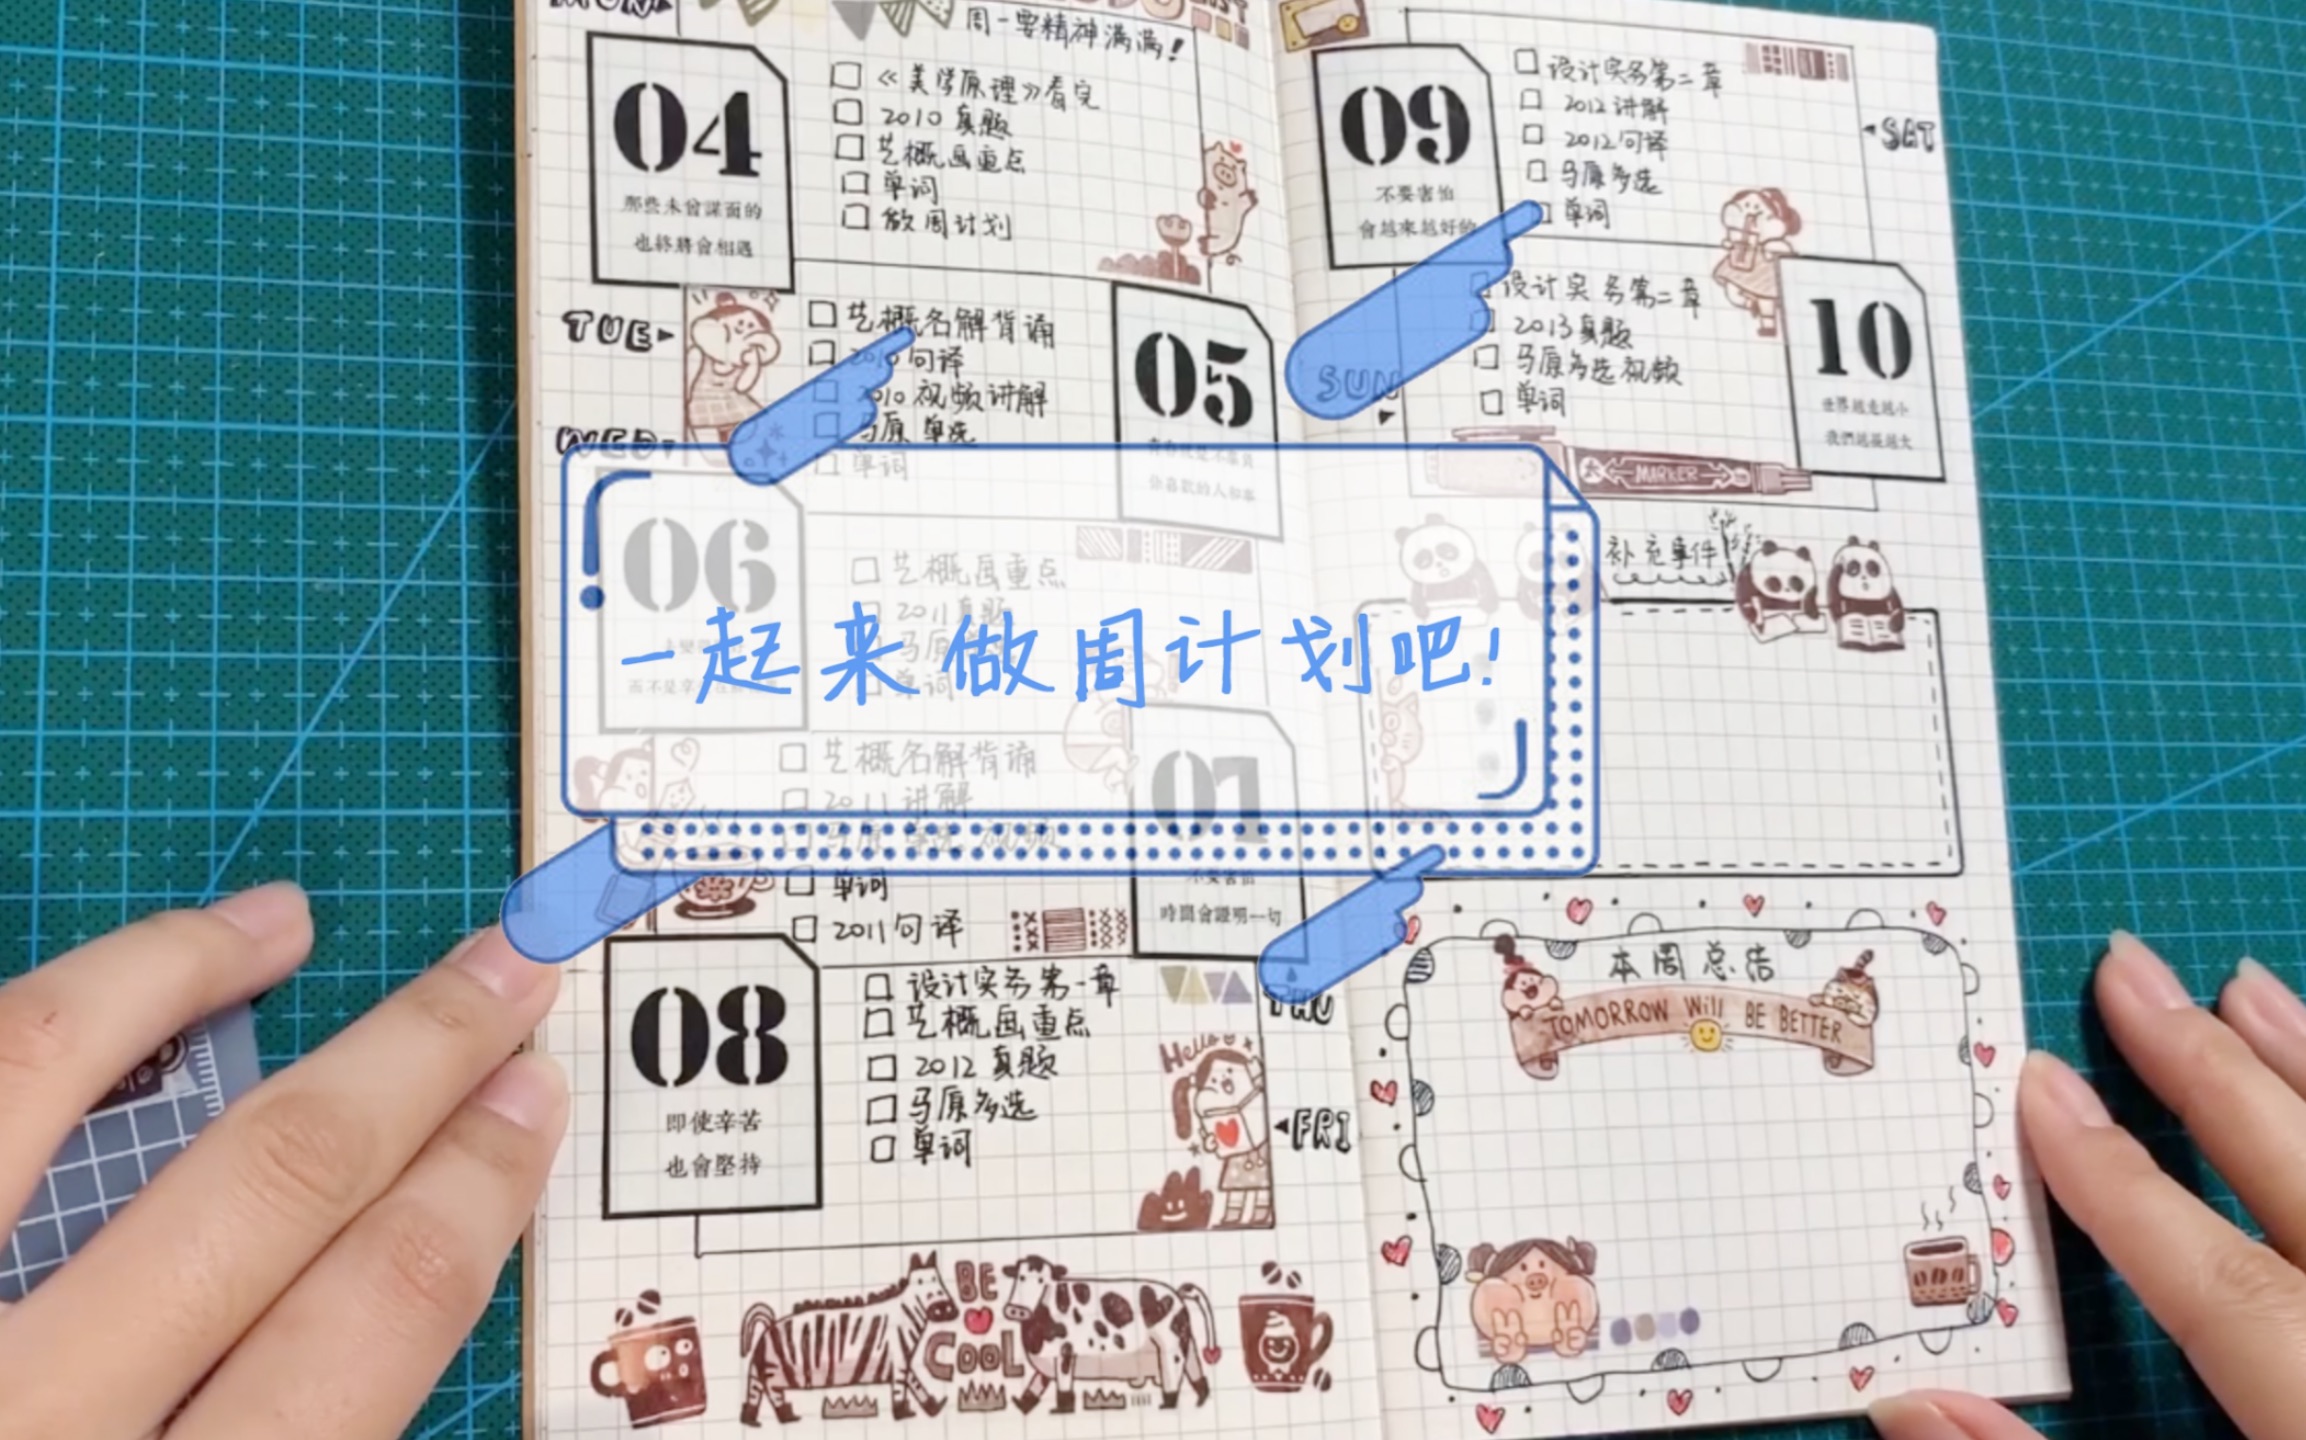 MON
周一要精神满满!
04
那些未曾謀面的
也終將會相遇
《美学原理》看完
2010 真题
艺概画重点
单词
做周计划
TUE
艺概名解背诵
2010句译
2010视频讲解
马原 单选
单词
05
你喜歡的人和事
WED
06
艺概画重点
2011真题
马原
单词
一起来做周计划吧!
艺概名解背诵
2011讲解
马原 单选 视频
单词
2011句译
07
不要害怕
時間會證明一切
THU
08
即使辛苦
也會堅持
设计实务第一章
艺概画重点
2012 真题
马原多选
单词
Hello
FRI
BE
COOL
09
不要害怕
會越來越好的
设计实务第二章
2012讲解
2012句译
马原多选
单词
SAT
设计实务第二章
2013真题
马原多选视频
单词
SUN
10
世界越走越小
我們越區越大
MARKER
补充事件
本周总结
TOMORROW Will BE BETTER